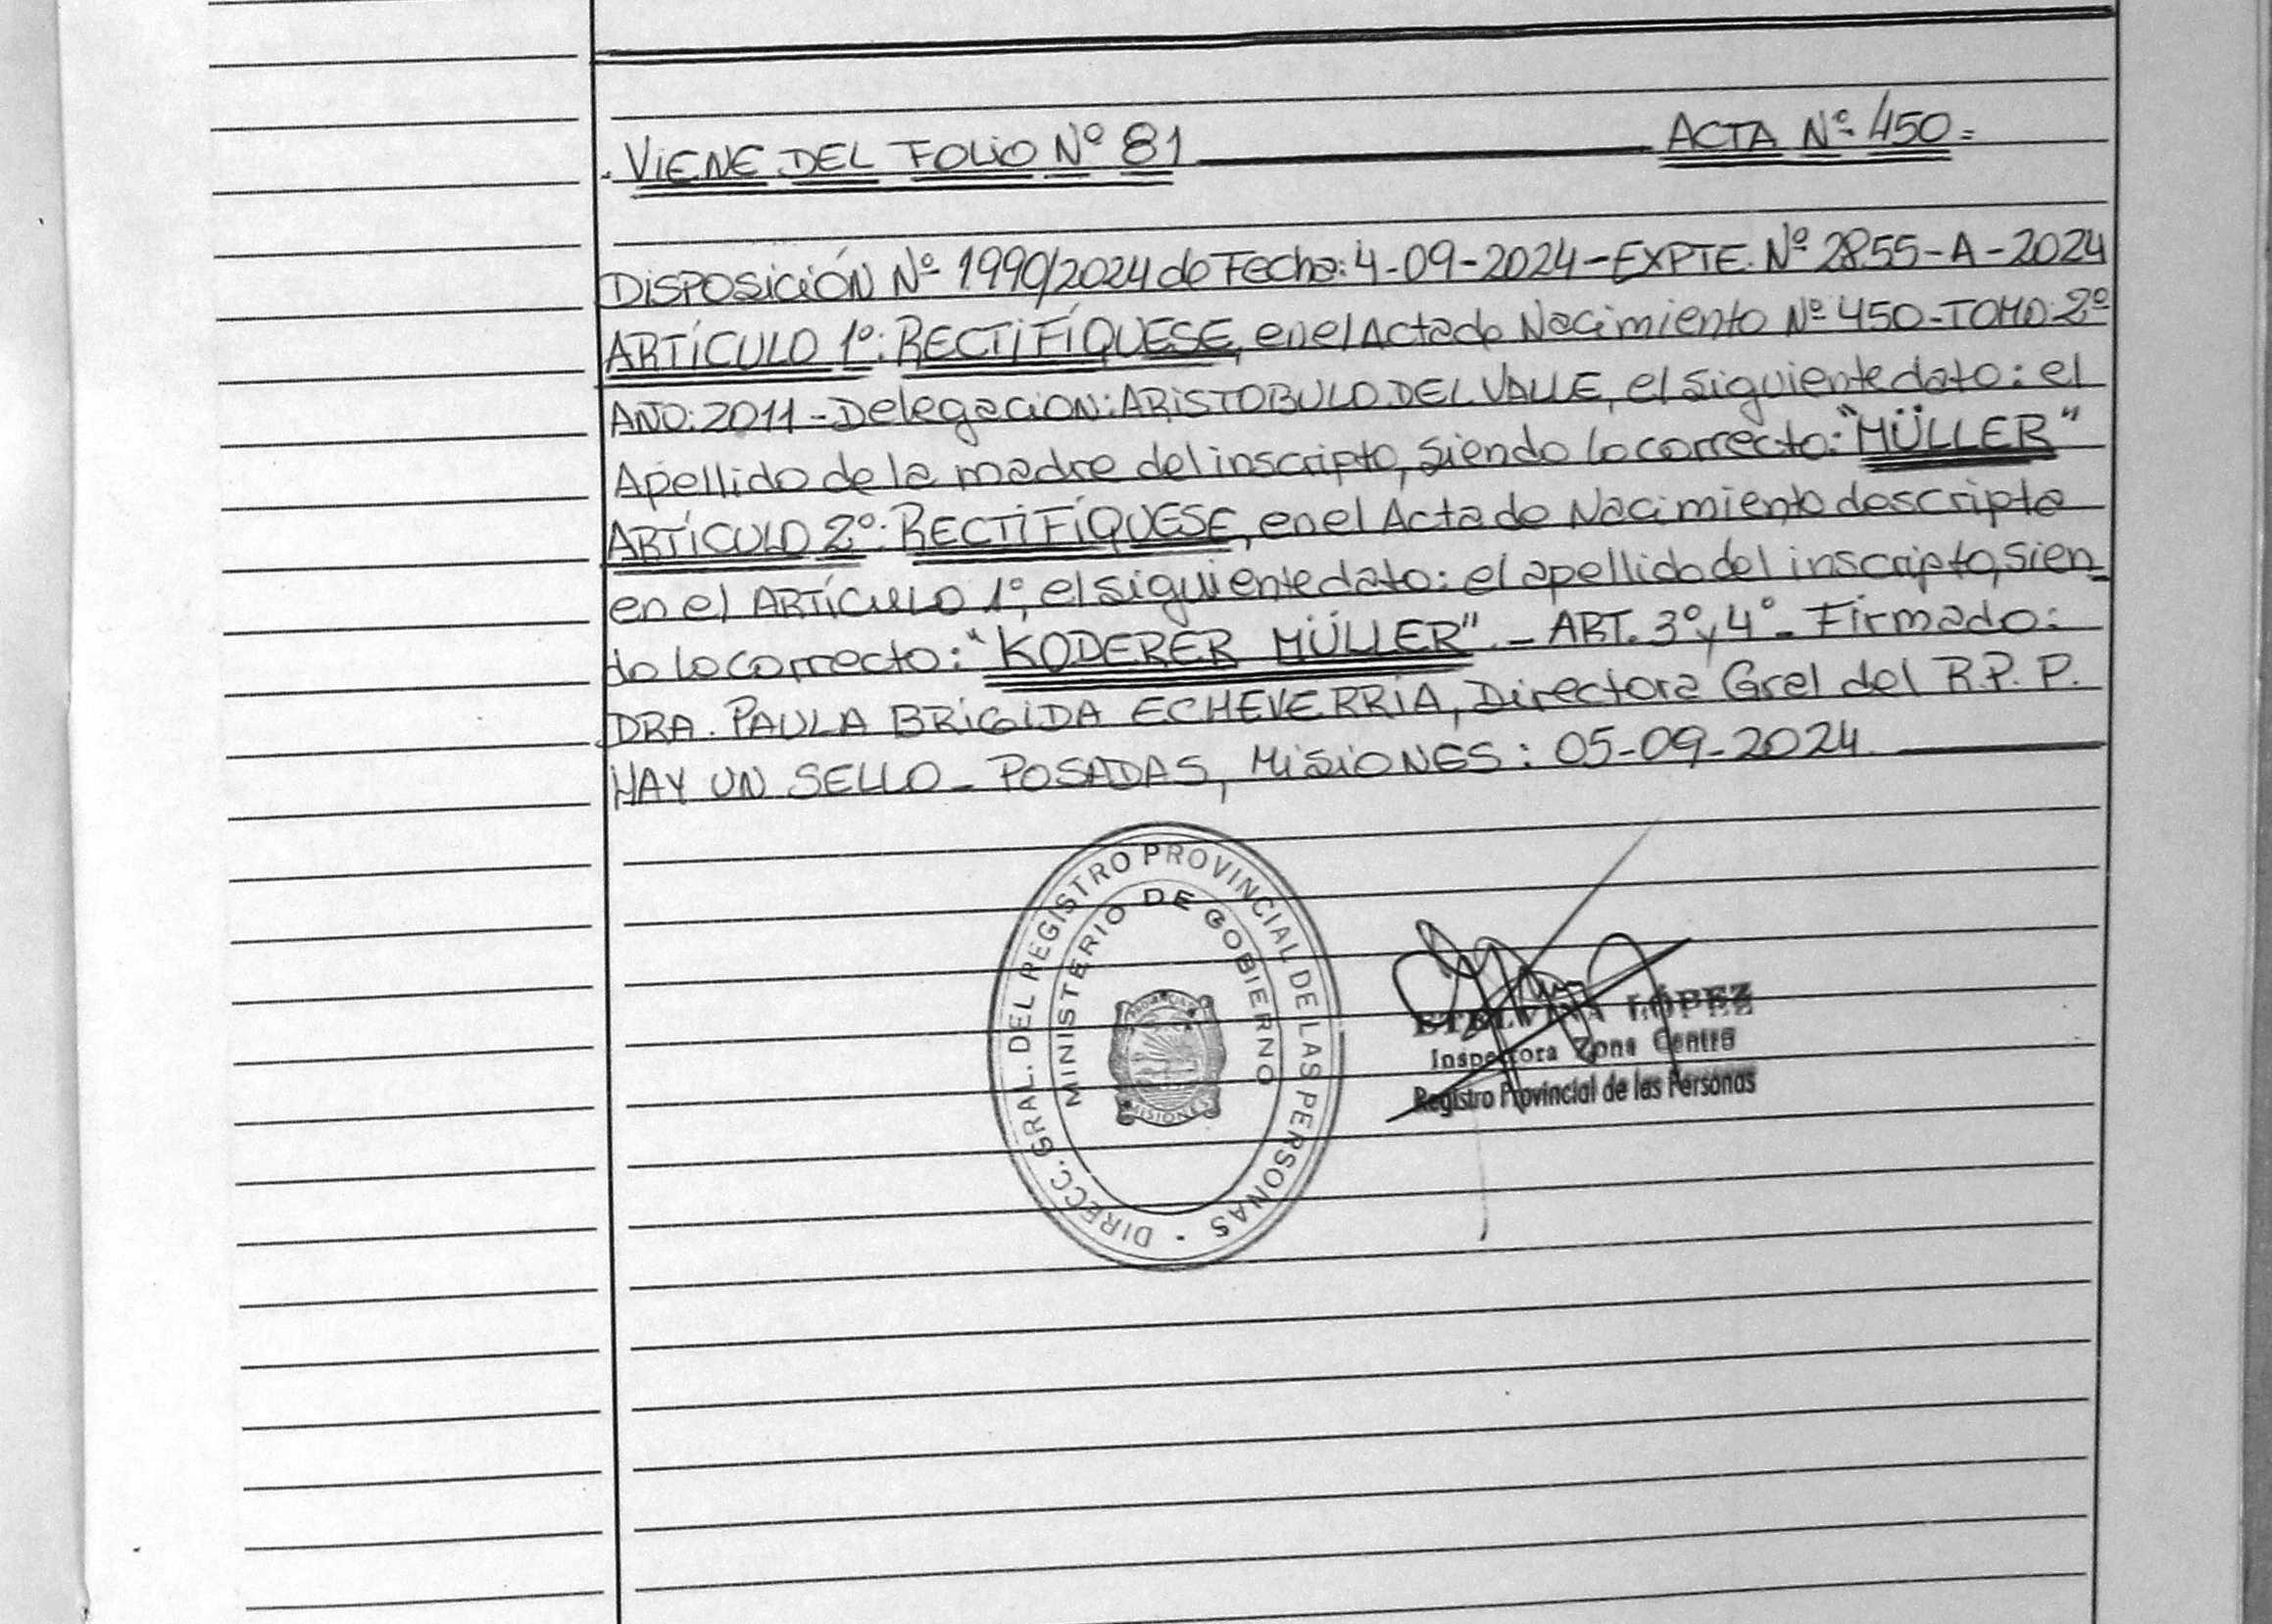 VIENE DEL FOLIO Nº 81 ACTA Nº 450=
DISPOSICIÓN Nº 1990/2024 de Fecha: 4-09-2024-EXPTE. Nº 2855-A-2024
ARTÍCULO 1º: RECTIFÍQUESE, en el Acta de Nacimiento Nº 450-TOMO: 2º
AÑO: 2011-Delegacion: ARISTOBULO DEL VALLE, el siguiente dato: el
Apellido de la madre del inscripto, siendo lo correcto: "MÜLLER"
ARTÍCULO 2º: RECTIFÍQUESE, en el Acta de Nacimiento descripta
en el ARTÍCULO 1º, el siguiente dato: el apellido del inscripto, sien_
do lo correcto: "KODERER MÜLLER".- ART. 3º y 4º- Firmado:
DRA. PAULA BRIGIDA ECHEVERRIA, Directora Gral del R.P.P.
HAY UN SELLO- POSADAS, MISIONES: 05-09-2024
DIRECC. GRAL. DEL REGISTRO PROVINCIAL DE LAS PERSONAS
MINISTERIO DE GOBIERNO
MISIONES
ETELVINA LÓPEZ
Inspectora Zona Centro
Registro Provincial de las Personas